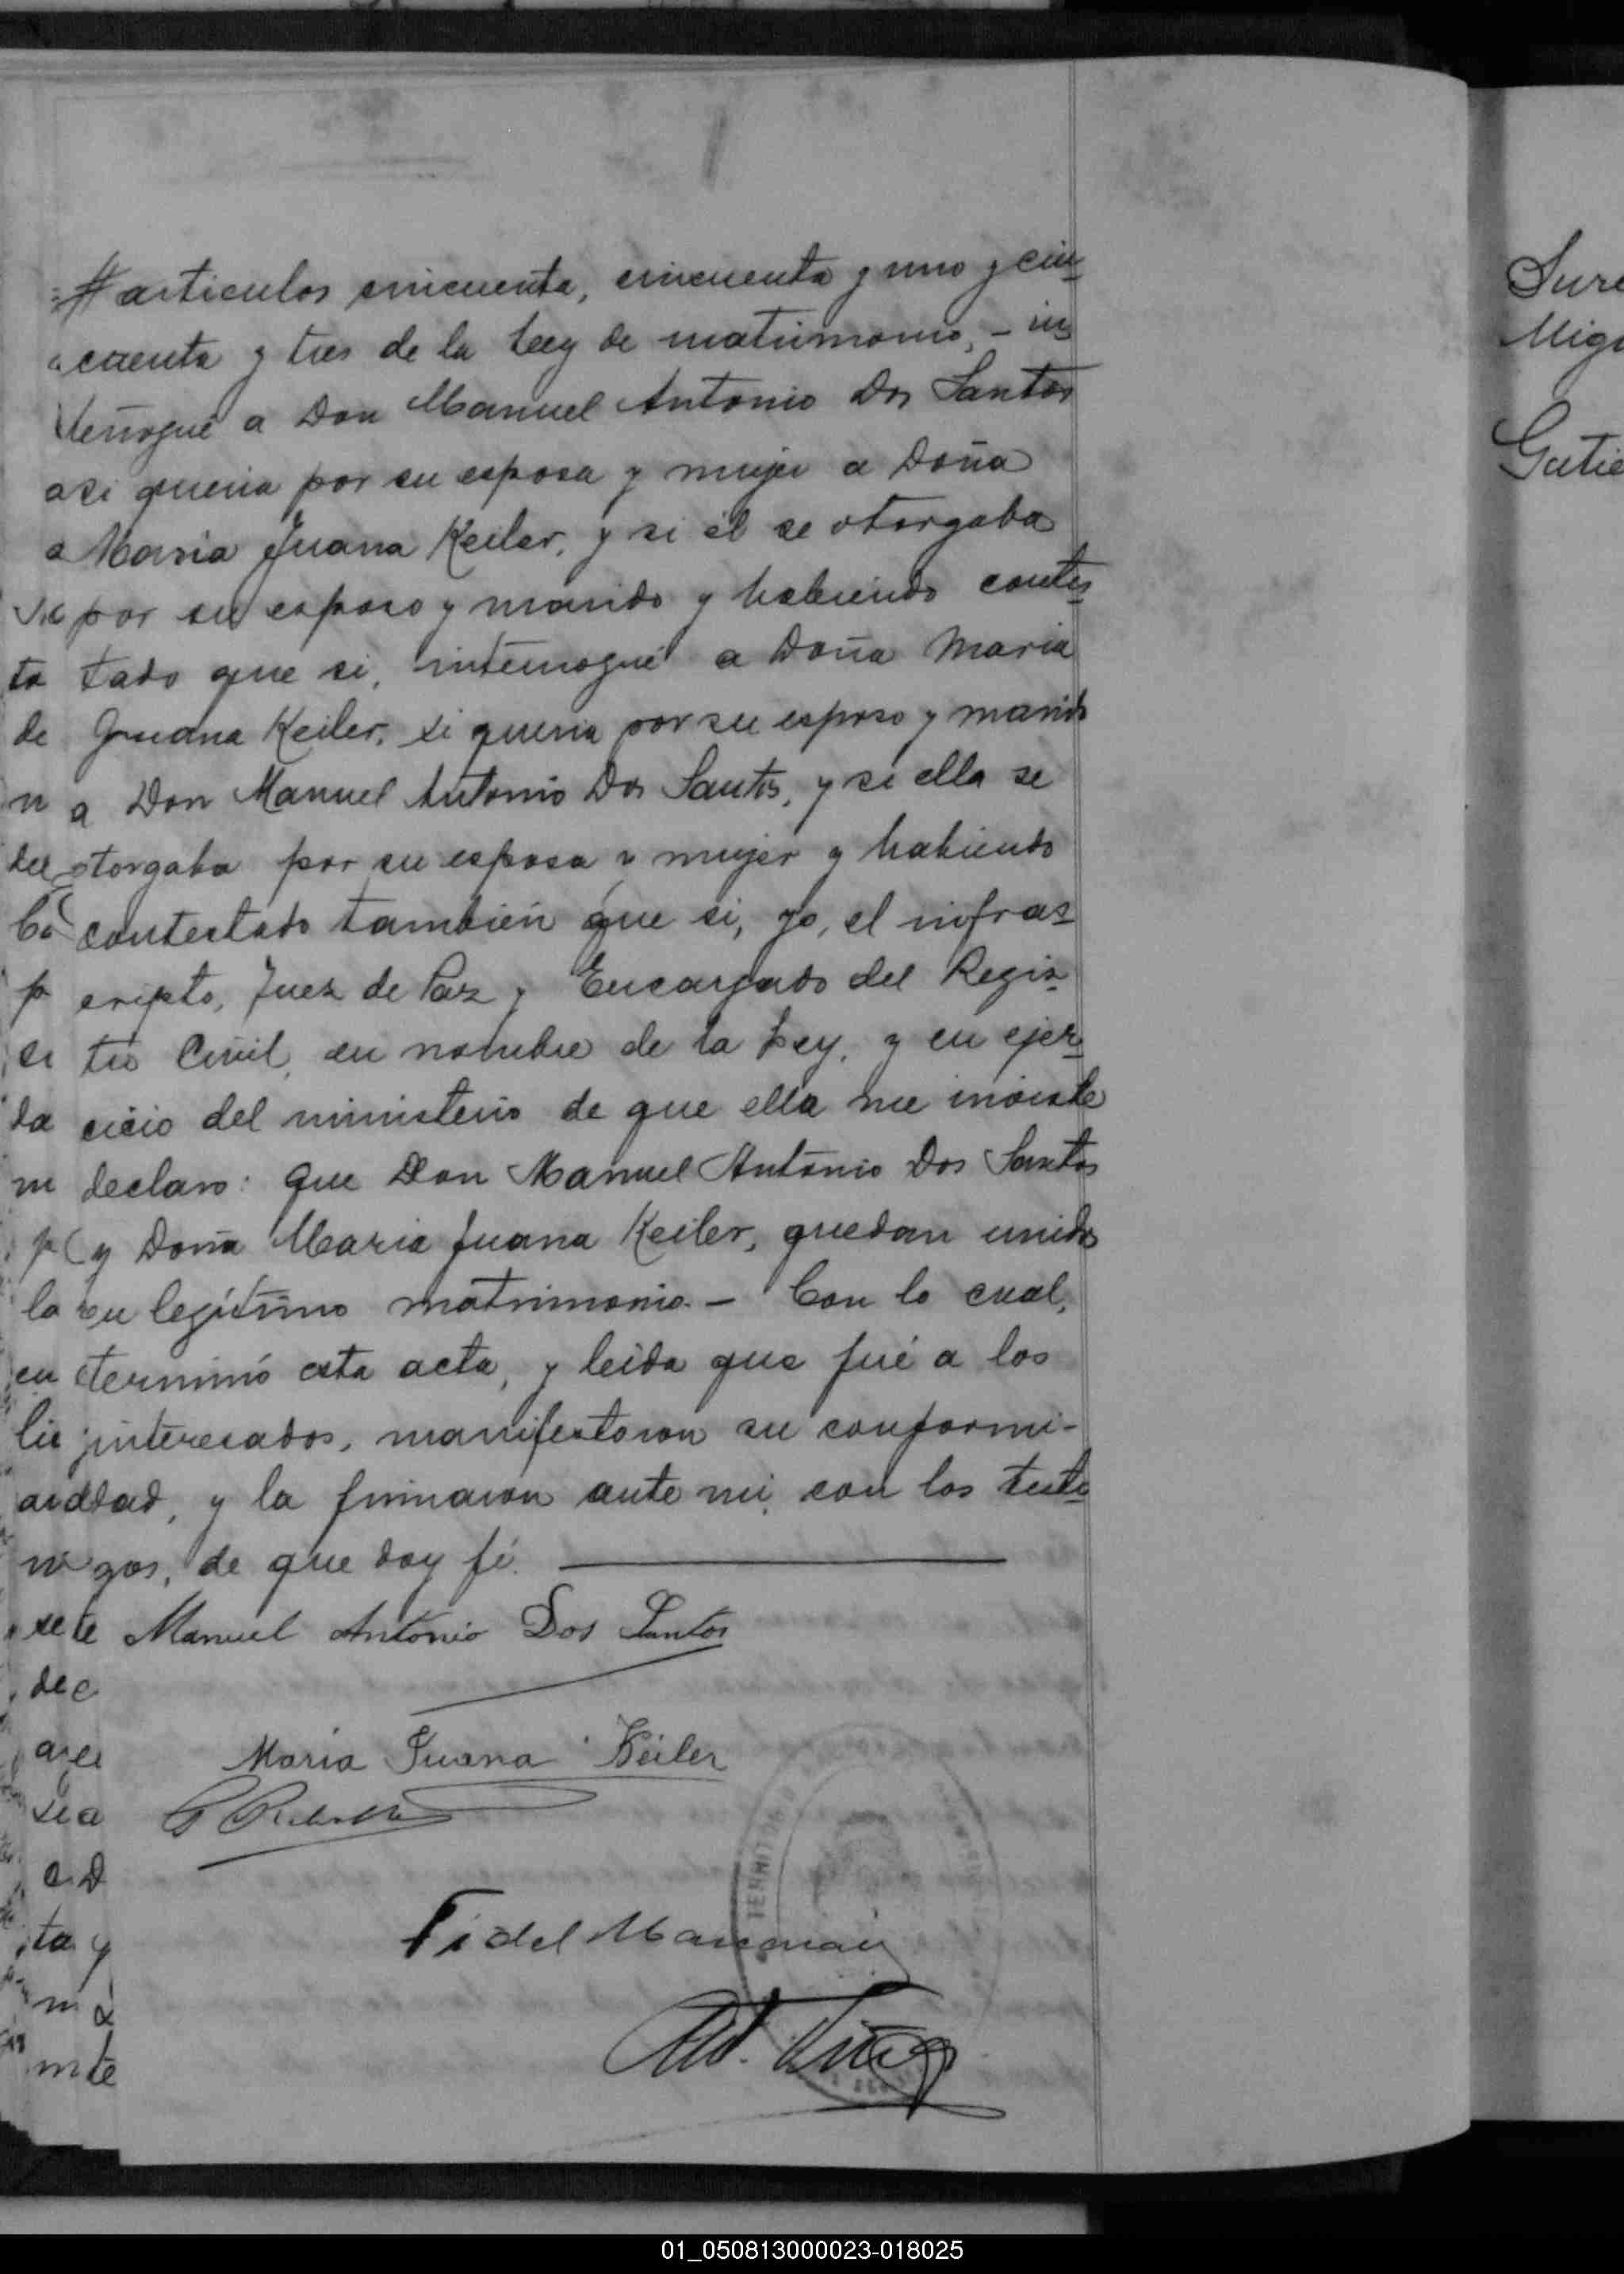 articulos cincuenta, cincuenta y uno y cin-
cuenta y tres de la Ley de matrimonio, - in-
terrogué a Don Manuel Antonio Dos Santos
si queria por su esposa y mujer a Doña
Maria Juana Keiler, y si él se otorgaba
por su esposo y marido y habiendo contes-
tado que si, interrogué a Doña Maria
Juana Keiler, si queria por su esposo y marido
a Don Manuel Antonio Dos Santos, y si ella se
otorgaba por su esposa y mujer y habiendo
contestado también que si, yo, el infras-
cripto, Juez de Paz y Encargado del Regis-
tro Civil, en nombre de la Ley, y en ejer-
cicio del ministerio de que ella me inviste
declaro: que Don Manuel Antonio Dos Santos
y Doña Maria Juana Keiler, quedan unidos
en legítimo matrimonio. - Con lo cual,
terminó esta acta, y leida que fué a los
interesados, manifestaron su conformi-
dad, y la firmaron ante mi, con los testi-
gos, de que doy fé.
Manuel Antonio Dos Santos
Maria Juana Keiler
Fidel
Sure
Migu
Gutie
01_050813000023-018025